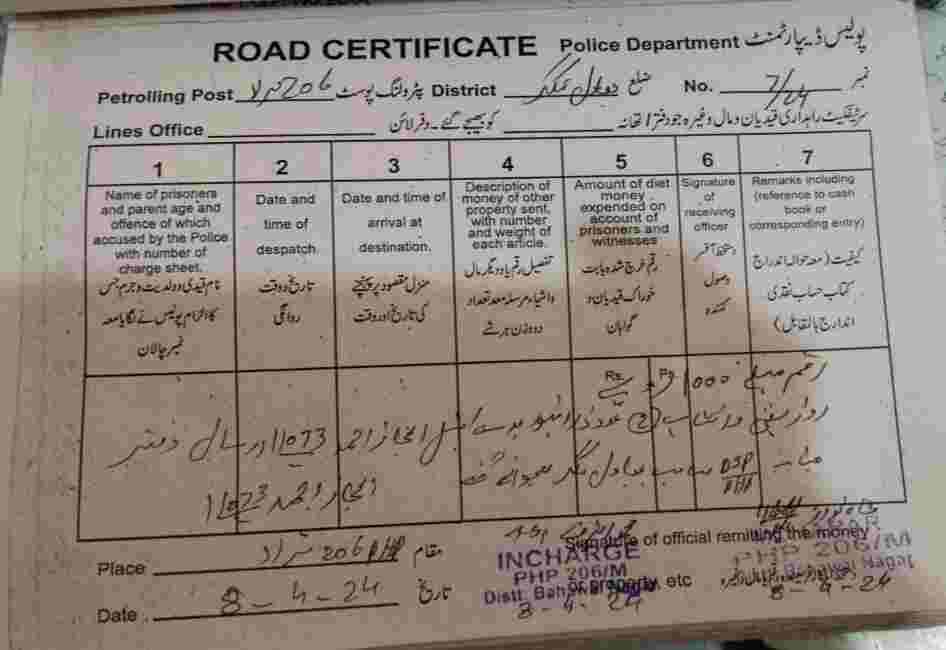 ROAD CERTIFICATE Police Department پولیس ڈیپارٹمنٹ
Petrolling Post 206 مراد پٹرولنگ پوسٹ District بہاولنگر ضلع No. 7/24 نمبر
Lines Office کو بھیجے گئے۔ دفتر لائن سرٹیفکیٹ راہداری قیدیان و مال وغیرہ جو دفتر / تھانہ
1 2 3 4 5 6 7
Name of prisoners and parent age and offence of which accused by the Police with number of charge sheet.
نام قیدی و ولدیت و جرم جس کا الزام پولیس نے لگایا معہ نمبر چالان
Date and time of despatch.
تاریخ و وقت روانگی
Date and time of arrival at destination.
منزل مقصود پر پہنچنے کی تاریخ اور وقت
Description of money of other property sent, with number and weight of each article.
تفصیل رقم یا دیگر مال و اشیاء مرسلہ معہ تعداد و وزن ہر شے
Amount of diet money expended on account of prisoners and witnesses
رقم خرچ شدہ بابت خوراک قیدیان و گواہان
Signature of receiving officer
دستخط آفسر وصول کنندہ
Remarks including (reference to cash book or corresponding entry)
کیفیت (معہ حوالہ اندراج کتاب حساب نقدی اندارج بالمقابل)
Rs. Ps.
رقم مبلغ 1000 روپے
اعجاز احمد 11073 ارسال دفتر
DSP/PHP بہاولنگر
اعجاز احمد 11073
Place 206 مراد مقام
Signature of official remitting the money or property, etc
Date 8-4-24 تاریخ
INCHARGE
PHP 206/M
Distt. Bahawal Nagar
8-4-24
PHP 206/M
Bahawal Nagar
8-4-24